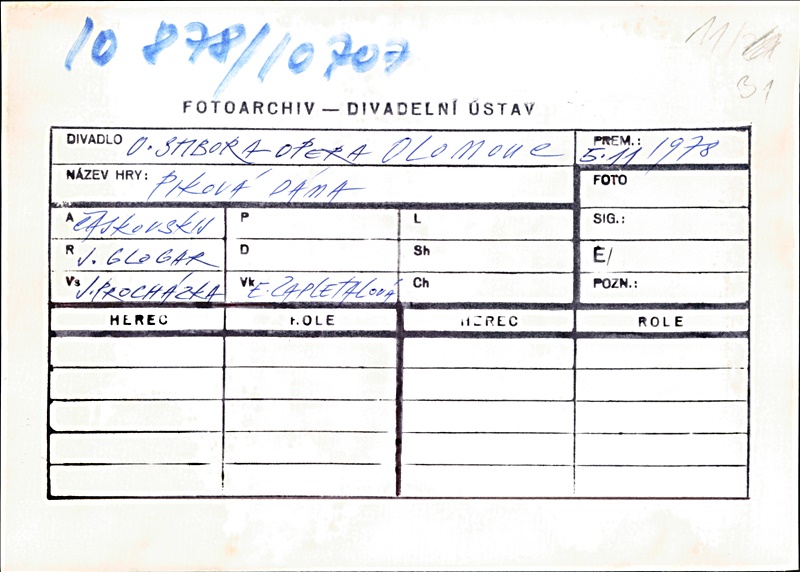 10 878/10 707
11/
31
FOTOARCHIV — DIVADELNÍ ÚSTAV
DIVADLO O. STIBORA OPERA OLOMOUC PREM.: 5.11 1978
NÁZEV HRY: PIKOVÁ DÁMA FOTO
A ČAJKOVSKIJ P L SIG.:
R J. GLOGAR D Sh Ě/
Vs J. PROCHÁZKA Vk E. ZAPLETALOVÁ Ch POZN.:
HEREC ROLE HEREC ROLE